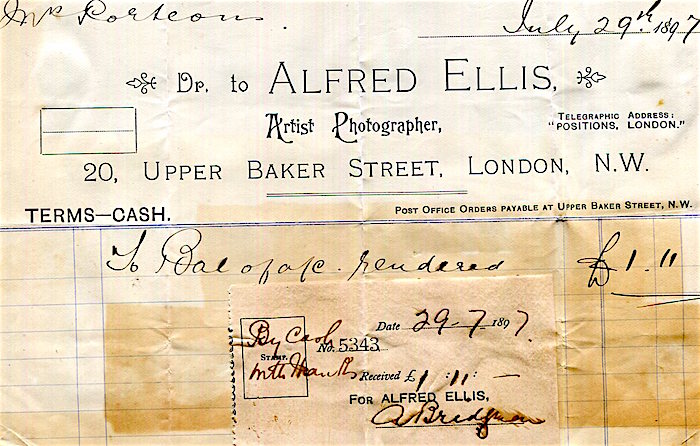 Mr Porteous.
July 29th 1897
Dr. to ALFRED ELLIS,
Artist Photographer,
TELEGRAPHIC ADDRESS:
"POSITIONS, LONDON."
20, UPPER BAKER STREET, LONDON, N.W.
TERMS—CASH.
POST OFFICE ORDERS PAYABLE AT UPPER BAKER STREET, N.W.
To Bal of a/c. rendered £1. 11
Date 29-7 1897.
By Cash
STAMP.
with thanks
No. 5343
Received £1 : 11 : —
FOR ALFRED ELLIS,
A Bridgman